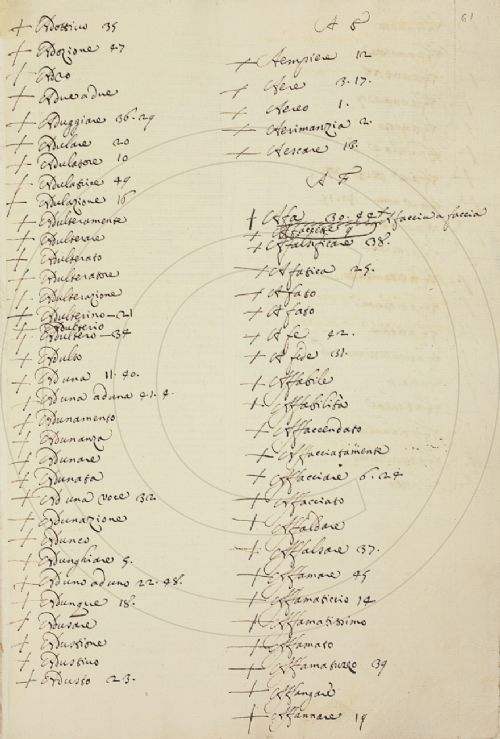 61
+ Adottivo 35
+ Adozione 47
+ Adro
+ Adue adue
+ Aduggiare 36. 29
+ Adulare 20
+ Adulatore 10
+ Adulatrice 49
+ Adulazione 16
+ Adulteramente
+ Adulterare
+ Adulterato
+ Adulteratore
+ Adulterazione
+ Adulterino — 21
Adulterio
+ Adultero — 34
+ Adulto
+ Ad una 11. 40.
+ Ad una aduna 41. 4.
+ Adunamento
+ Adunanza
+ Adunare
+ Adunata
+ Ad una voce 32
+ Adunazione
+ Adunco
+ Adunghiare 5.
+ Aduno aduno 22. 48.
+ Adunque 18.
+ Adusare
+ Adustione
+ Adustivo
+ Adusto 23.
A E
+ Aempiere 12
+ Aere 3. 17.
+ Aereo 1.
+ Aerimanzia 2.
+ Aescare 18.
A F
+ Afa 30. 44 + Afaccia a faccia
+ Afalsificare 38.
+ Afatica 25.
+ Afato
+ Afato
+ A fe 42.
+ A fede 31.
+ Affabile
+ Affabilità
+ Affaccendato
+ Affacciatamente
+ Affacciare 6. 24
+ Affacciato
+ Affaldare
+ Affalsare 37.
+ Affamare 45
+ Affamaticcio 14
+ Affamatissimo
+ Affamato
+ Affamatuzzo 39
+ Affangare
+ Affannare 19